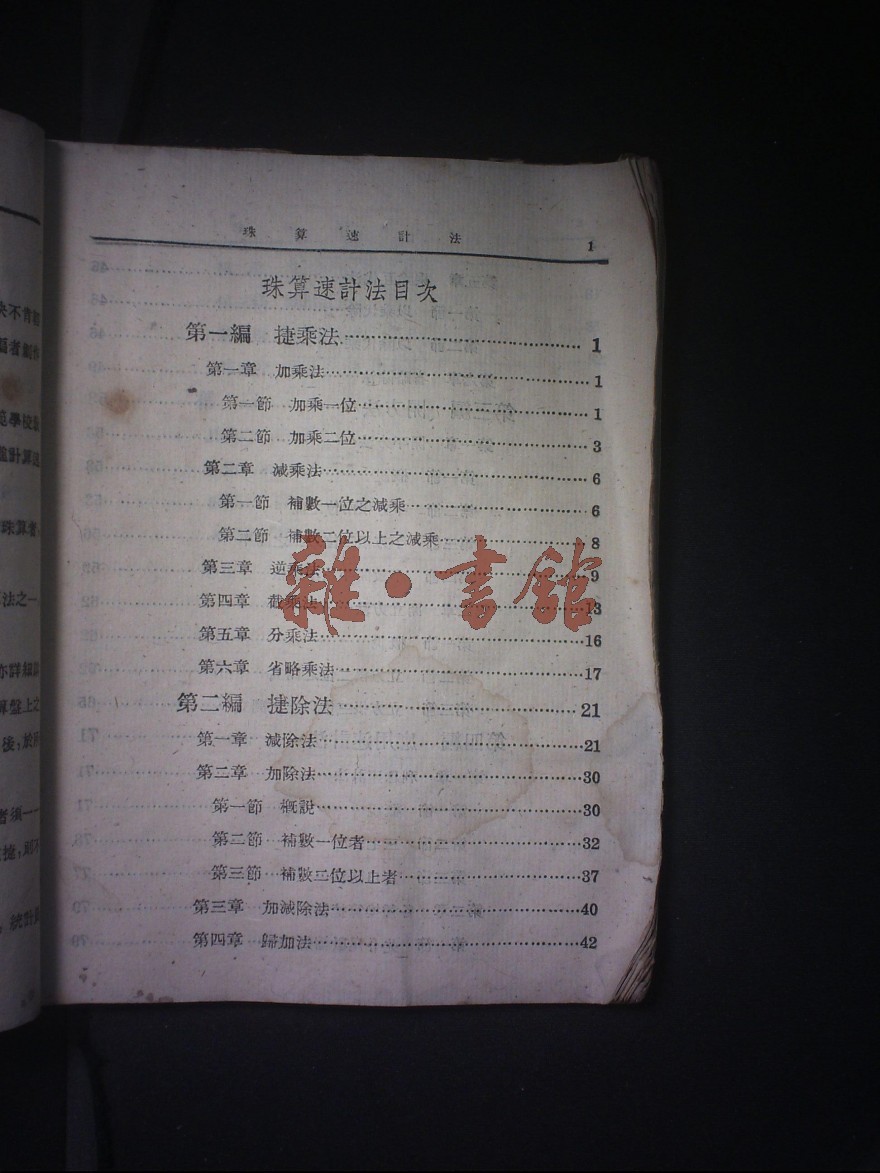 珠算速計法 1
珠算速計法目次
第一編 捷乘法 1
第一章 加乘法 1
第一節 加乘一位 1
第二節 加乘二位 3
第二章 減乘法 6
第一節 補數一位之減乘 6
第二節 補數二位以上之減乘 8
第三章 逆乘法 9
第四章 截乘法 13
第五章 分乘法 16
第六章 省略乘法 17
第二編 捷除法 21
第一章 減除法 21
第二章 加除法 30
第一節 概說 30
第二節 補數一位者 32
第三節 補數二位以上者 37
第三章 加減除法 40
第四章 歸加法 42
雜·書館